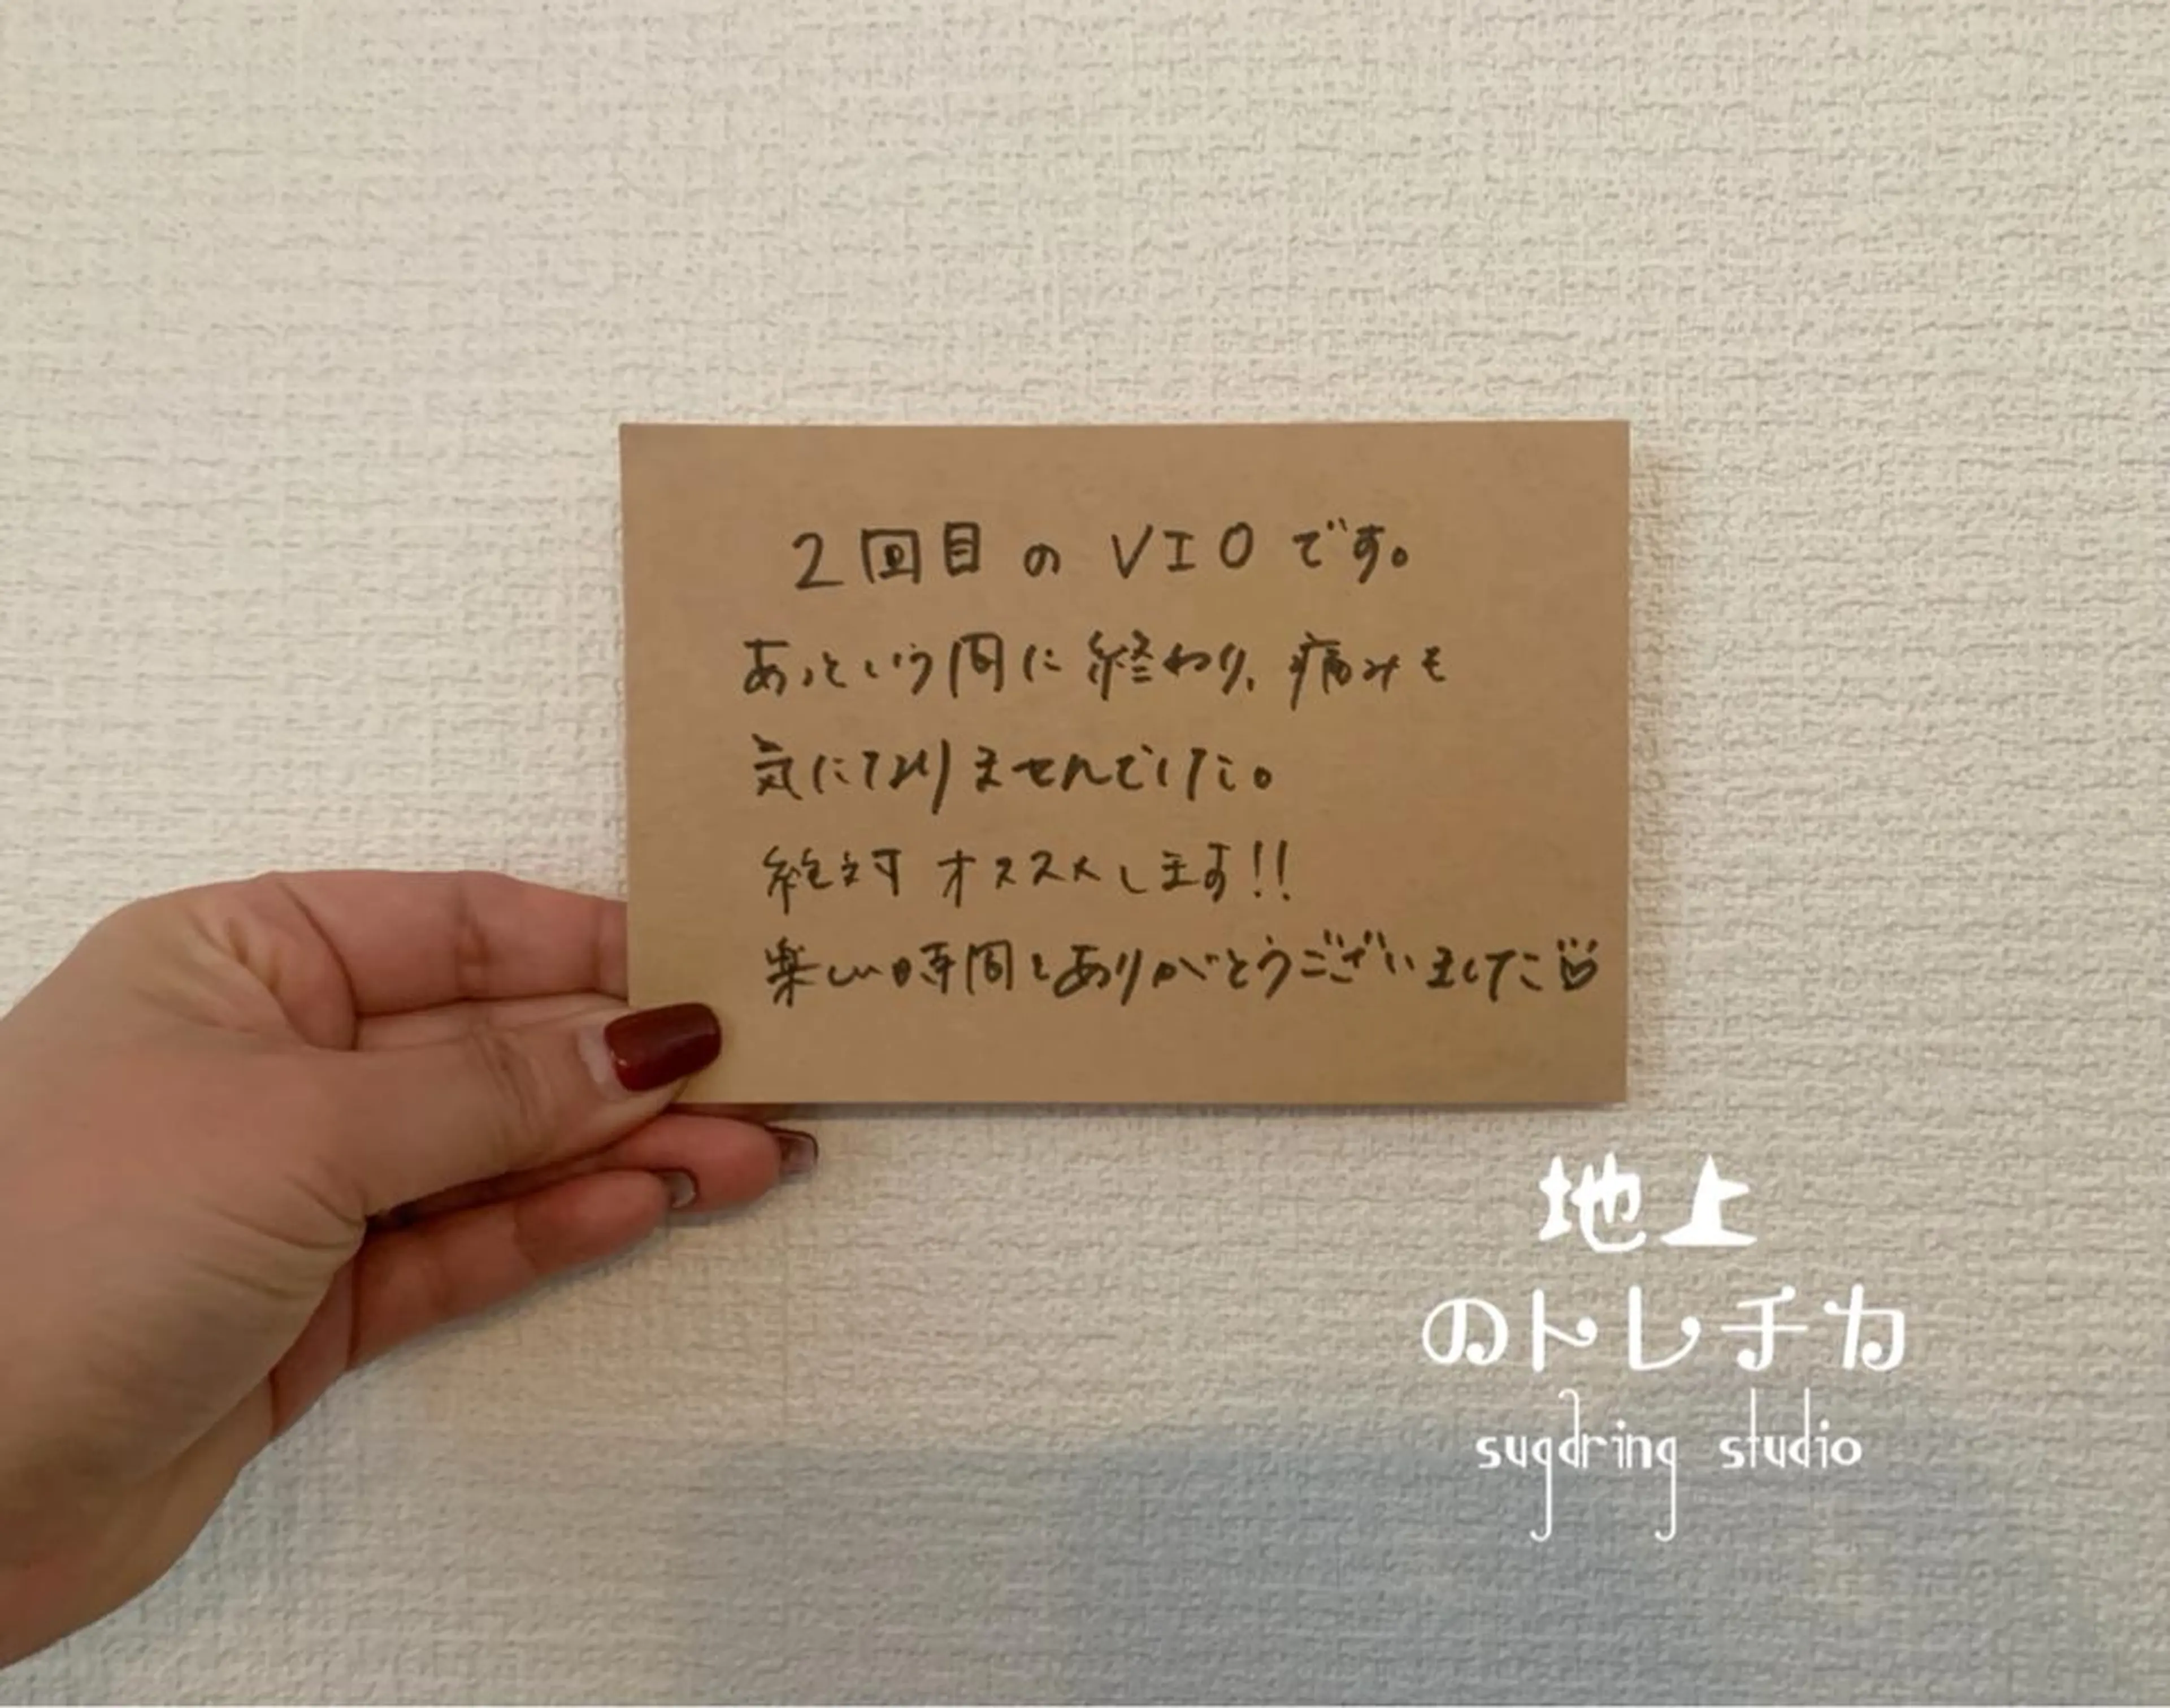 2回目の VIO です。
あっという間に終わり、痛みも
気になりませんでした。
絶対オススメします!!
楽しい時間をありがとうございました
地上
のトレチカ
sugaring studio